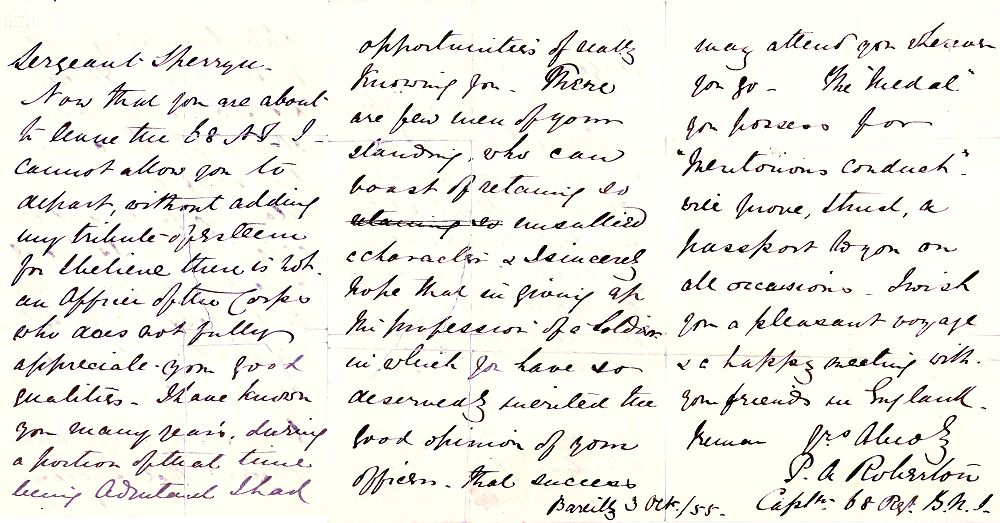 Sergeant Sherryn.
Now that you are about
to leave the 68 N.I. I
cannot allow you to
depart, without adding
my tribute of esteem
for I believe there is not
an Officer of the Corps
who does not fully
appreciate your good
qualities. I have known
you many years, during
a portion of that time
being Adjutant I had
opportunities of really
knowing you. There
are few men of your
standing, who can
boast of retaining so
retaining so unsullied
a character & I sincerely
hope that in giving up
the profession of a Soldier
in which you have so
deservedly merited the
good opinion of your
officers that success
may attend you wherever
you go. The "Medal"
you possess for
"Meritorious conduct"
will prove, I trust, a
passport to you on
all occasions. I wish
you a pleasant voyage
& a happy meeting with
your friends in England.
Remain yrs truly
P. A. Robertson
Bareilly 3 Oct./55. Captn. 68 Regt. B.N.I.